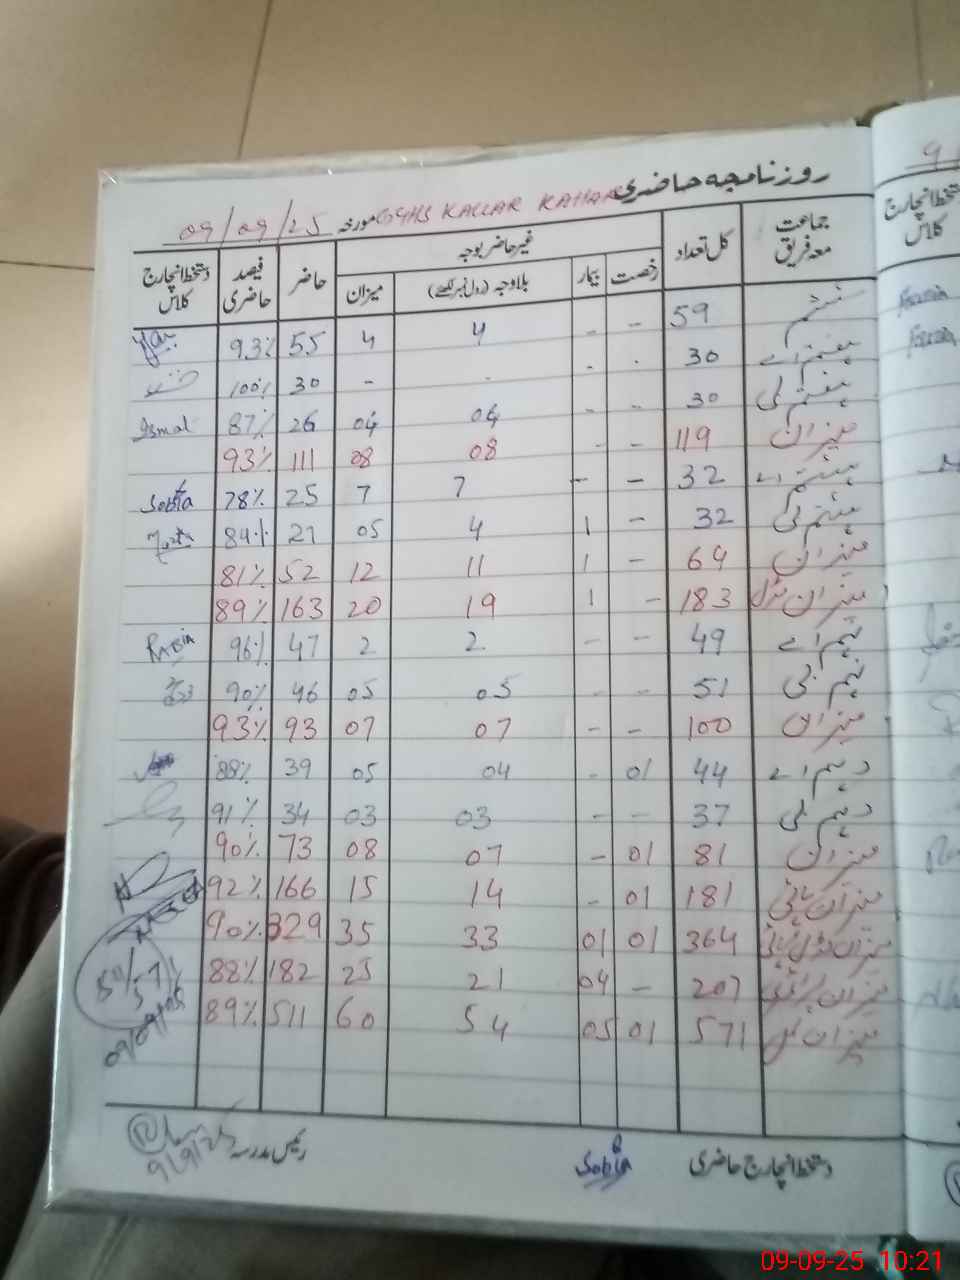 روزنامچہ حاضری
GGHS KALLAR KAHAR مورخہ 09/09/25
جماعت معہ فریق کل تعداد غیر حاضر بوجہ حاضر فیصد حاضری دستخط انچارج کلاس
رخصت بیمار بلاوجہ (رول نمبر لکھئے) میزان
ششم 59 - - 4 4 55 93%
ہفتم اے 30 . - . - 30 100%
ہفتم بی 30 - - 04 04 26 87% Ismat
میزان 119 - - 08 08 111 93%
ہشتم اے 32 - - 7 7 25 78% Sobia
ہشتم بی 32 - 1 4 05 27 84%
میزان 64 - 1 11 12 52 81%
میزان مڈل 183 - 1 19 20 163 89%
نہم اے 49 - - 2 2 47 96% Rabia
نہم بی 51 - - 05 05 46 90%
میزان 100 - - 07 07 93 93%
دہم اے 44 01 - 04 05 39 88%
دہم بی 37 - - 03 03 34 91%
میزان 81 01 - 07 08 73 90%
میزان ہائی 181 01 - 14 15 166 92%
میزان مڈل ہائی 364 01 01 33 35 329 90%
میزان پرائمری 207 - 04 21 25 182 88%
میزان کل 571 01 05 54 60 511 89%
511/571
09/09/25
دستخط انچارج حاضری Sobia رئیس مدرسہ
9/9/25
کلاس
Fauzia
Fauzia
09-09-25 10:21